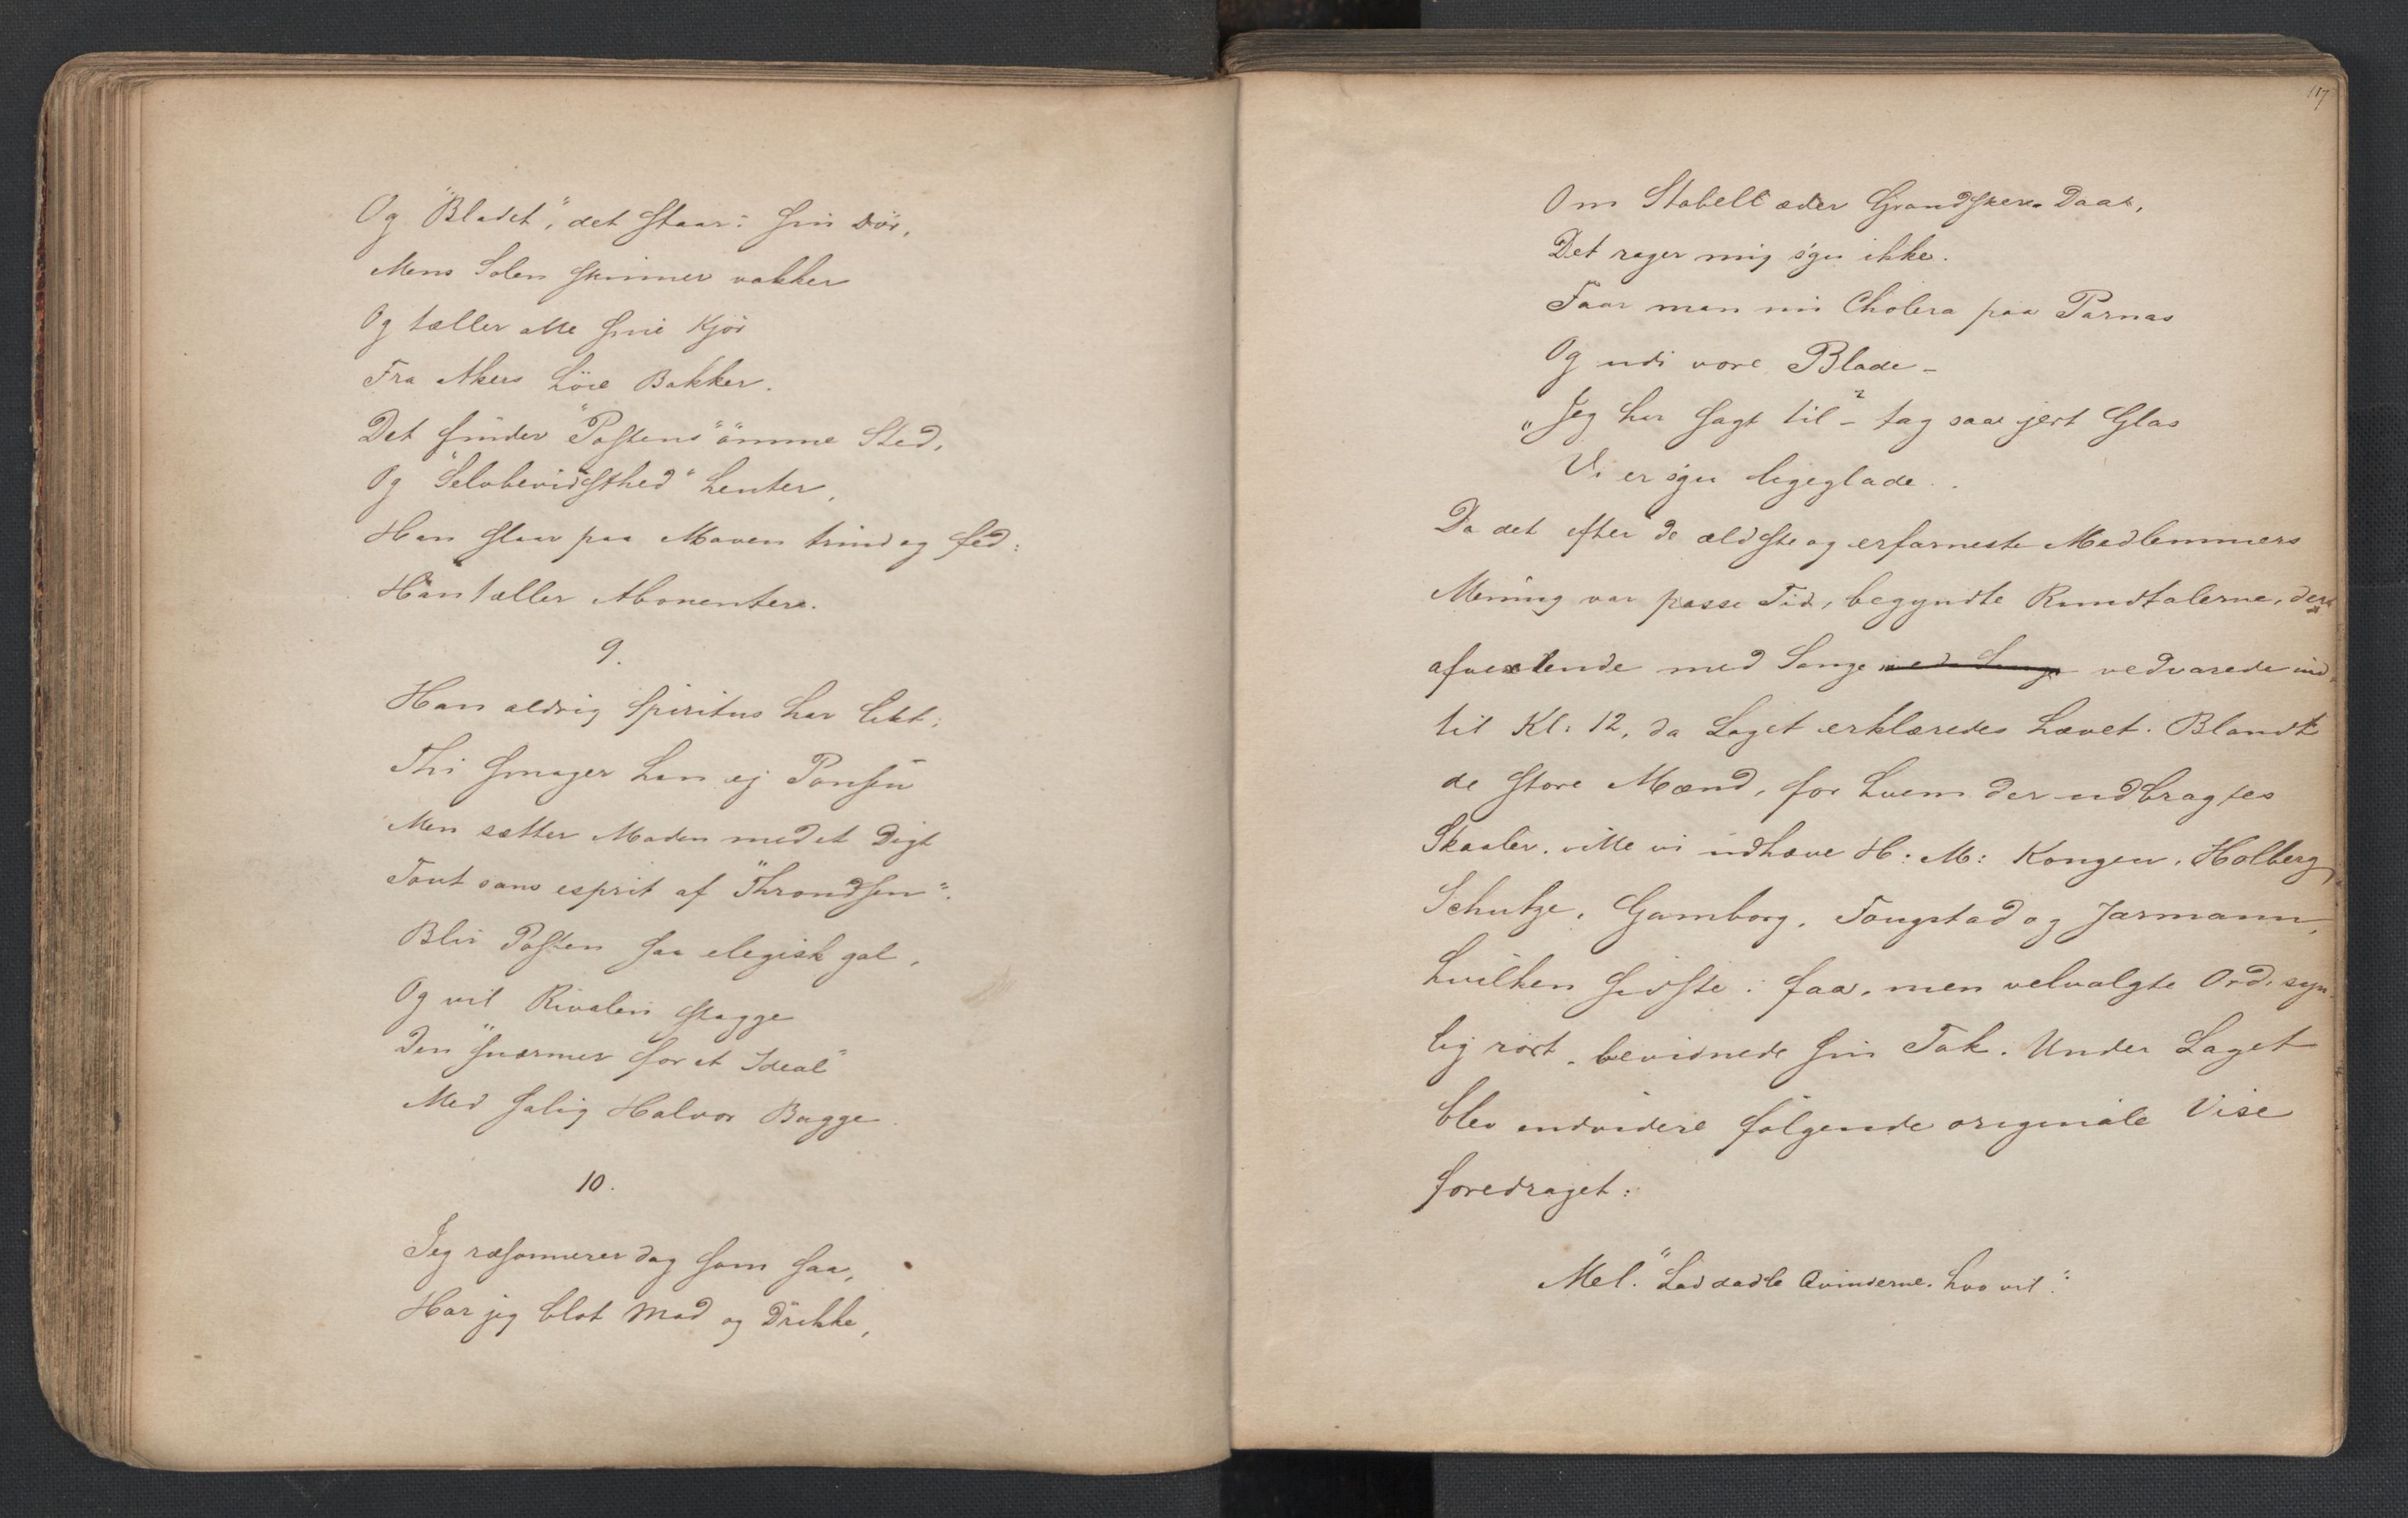 Og "Bladet", det staar i sin Dör,
Mens Solen skinner vakker
Og tæller alle sine Kjör
Fra Akers höie Bakker.
Det finder "Postens" ömme Sted,
Og "Selvbevidsthed" henter,
Han slaar paa Maven trind og fed:
Han tæller Abonenter.
9.
Han aldrig Spiritus har likt;
Thi smager han ej Ponsen
Men sætter Maden med et Digt
Tout sans esprit af "Throndsen".
Blir Posten saa elegisk gal,
Og vil Rivalen stagge
Den "sværmer for et Ideal"
Med salig Halvor Bagge.
10.
Jeg ræsonnerer dog som saa,
Har jeg blot Mad og Drikke,
117
Om Stabell æder Daas,
Det rager mig s'gu ikke.
Faar man nu Cholera paa Parnas
Og udi vore Blade -
"Jeg har sagt til" - tag saa jert Glas
Vi er s'gu ligeglade.
Da det efter de ældste og erfarneste Medlemmers
Mening var passe Tid, begyndte Rundtalerne, der
afvexlende med Sange vedvarede ind-
til Kl. 12, da Laget erklæredes hævet. Blandt
de store Mænd, for hvem der udbragtes
Skaaler, ville vi udhæve H: M: Kongen, Holberg,
Schutze, Gamborg, Tougstad og Jarmann,
hvilken sidste i faa, men velvalgte Ord, syn-
lig rört, bevidnede sin Tak. Under Laget
blev endvidere fölgende originale Vise
foredraget:
Mel. "Lad dadle Qvinderne, hvo vil".